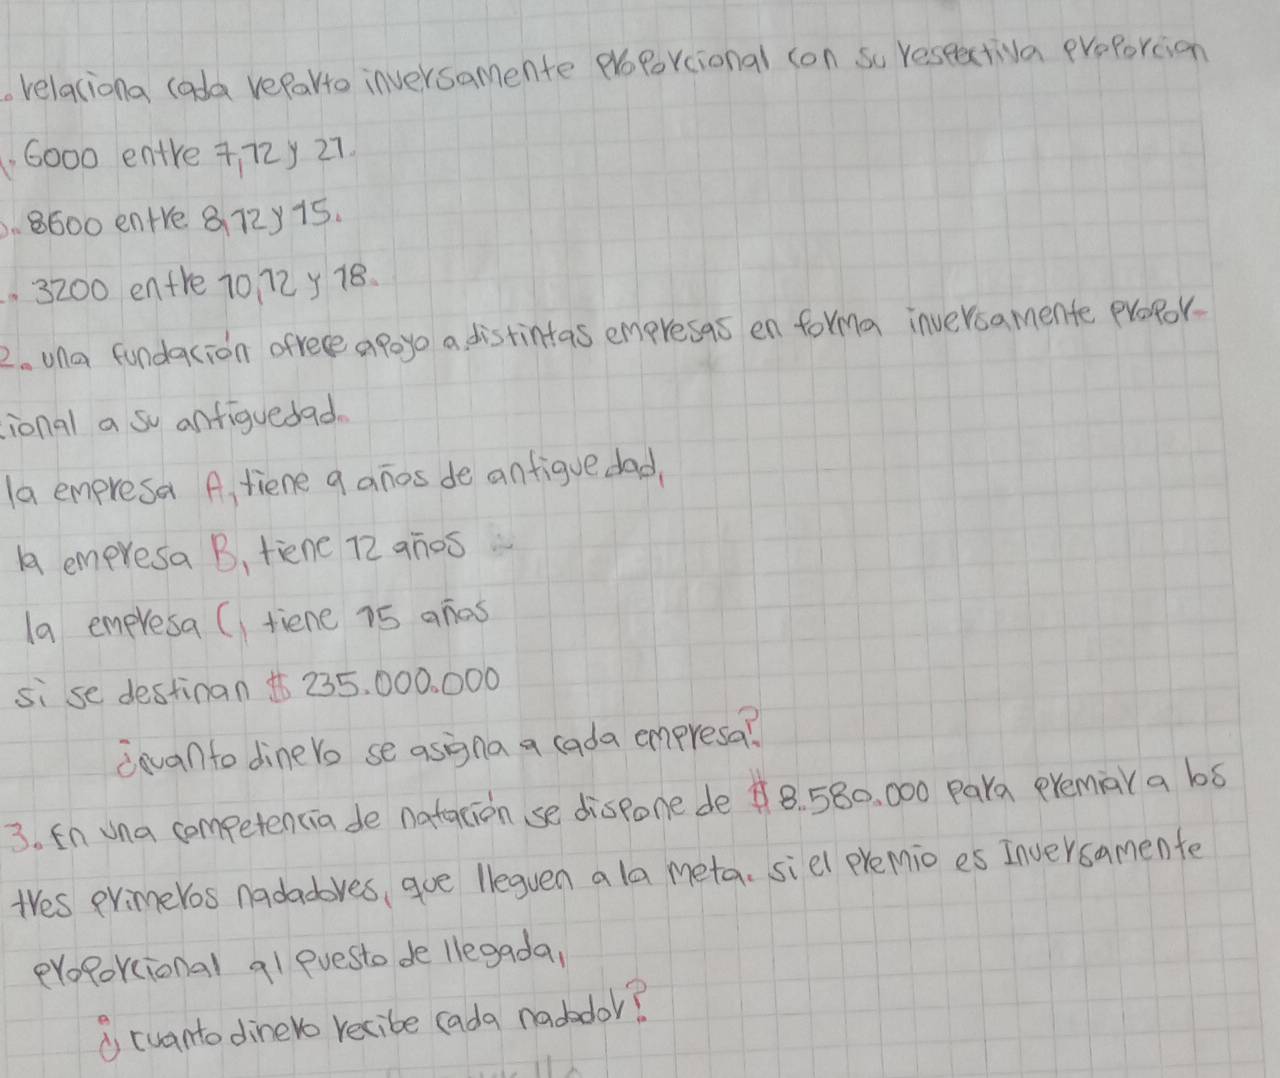 . relaciona cada reparto inversamente proporcional con su respectiva proporcion
. 6000 entre 7, 12 y 21.
. 8600 entre 8, 12 y 15.
. 3200 entre 10, 12 y 18.
2. una fundación ofrece apoyo a distintas empresas en forma inversamente propor-
cional a su antiguedad.
la empresa A, tiene 9 años de antiguedad,
la empresa B, tiene 12 años
la empresa C, tiene 15 años
si se destinan $ 235.000.000
¿cuanto dinero se asigna a cada empresa?
3. En una competencia de natación se dispone de $ 8.580.000 para premiar a los
tres primeros nadadores, que lleguen a la meta. si el premio es Inversamente
proporcional al puesto de llegada,
¿ cuanto dinero recibe cada nadador?